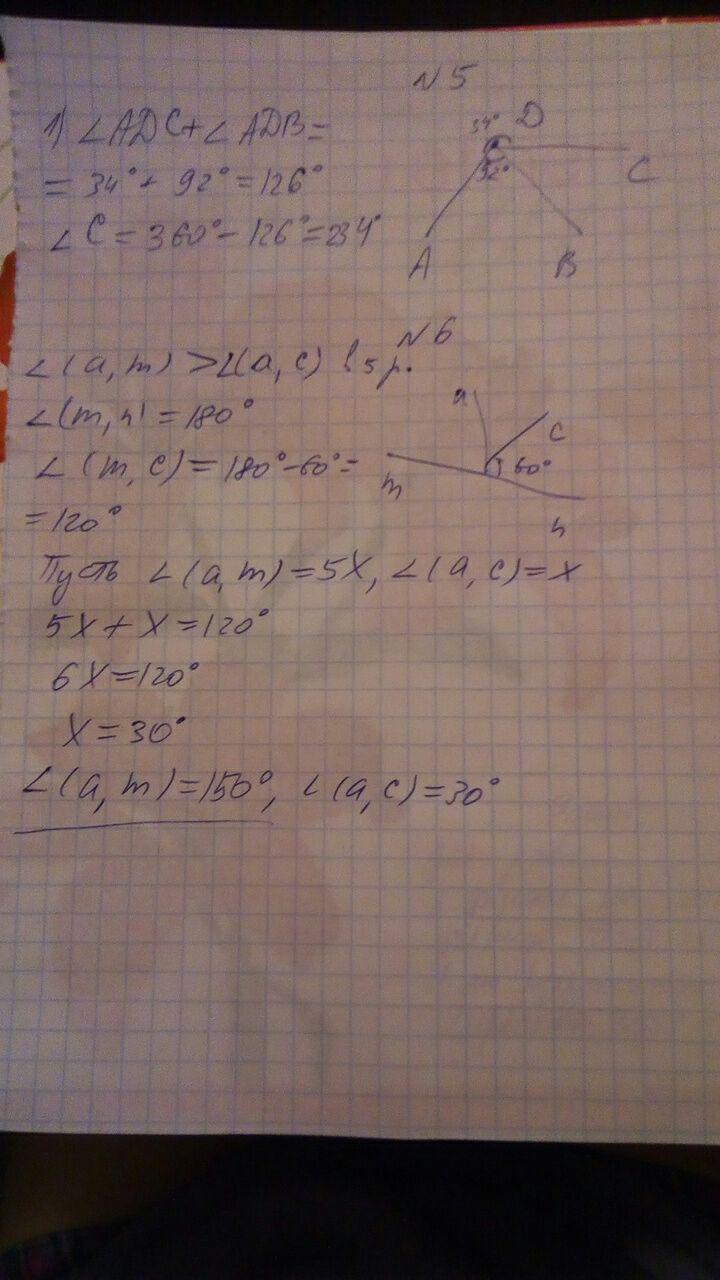 N5
1) ∠ADC+∠ADB=
= 34° + 92° = 126°
∠C = 360° - 126° = 234°
34° D
92°
C
A B
N6
∠(a, m) > ∠(a, c) в 5 р.
∠(m, n) = 180°
∠(m, c) = 180° - 60° =
= 120°
a
c
60°
m
n
Пусть ∠(a, m) = 5X, ∠(a, c) = x
5X + X = 120°
6X = 120°
X = 30°
∠(a, m) = 150°, ∠(a, c) = 30°